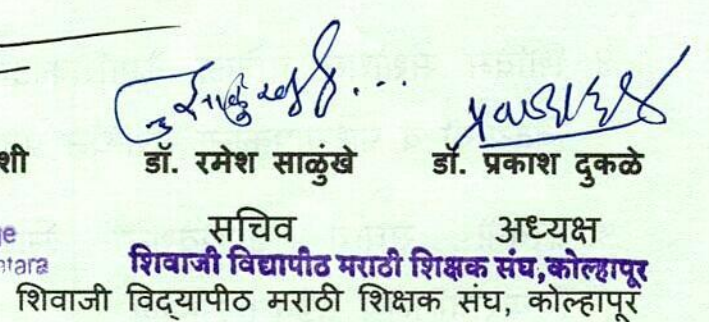 शी डॉ. रमेश साळुंखे डॉ. प्रकाश दुकळे
सचिव अध्यक्ष
शिवाजी विद्यापीठ मराठी शिक्षक संघ,कोल्हापूर
शिवाजी विद्‌यापीठ मराठी शिक्षक संघ, कोल्हापूर